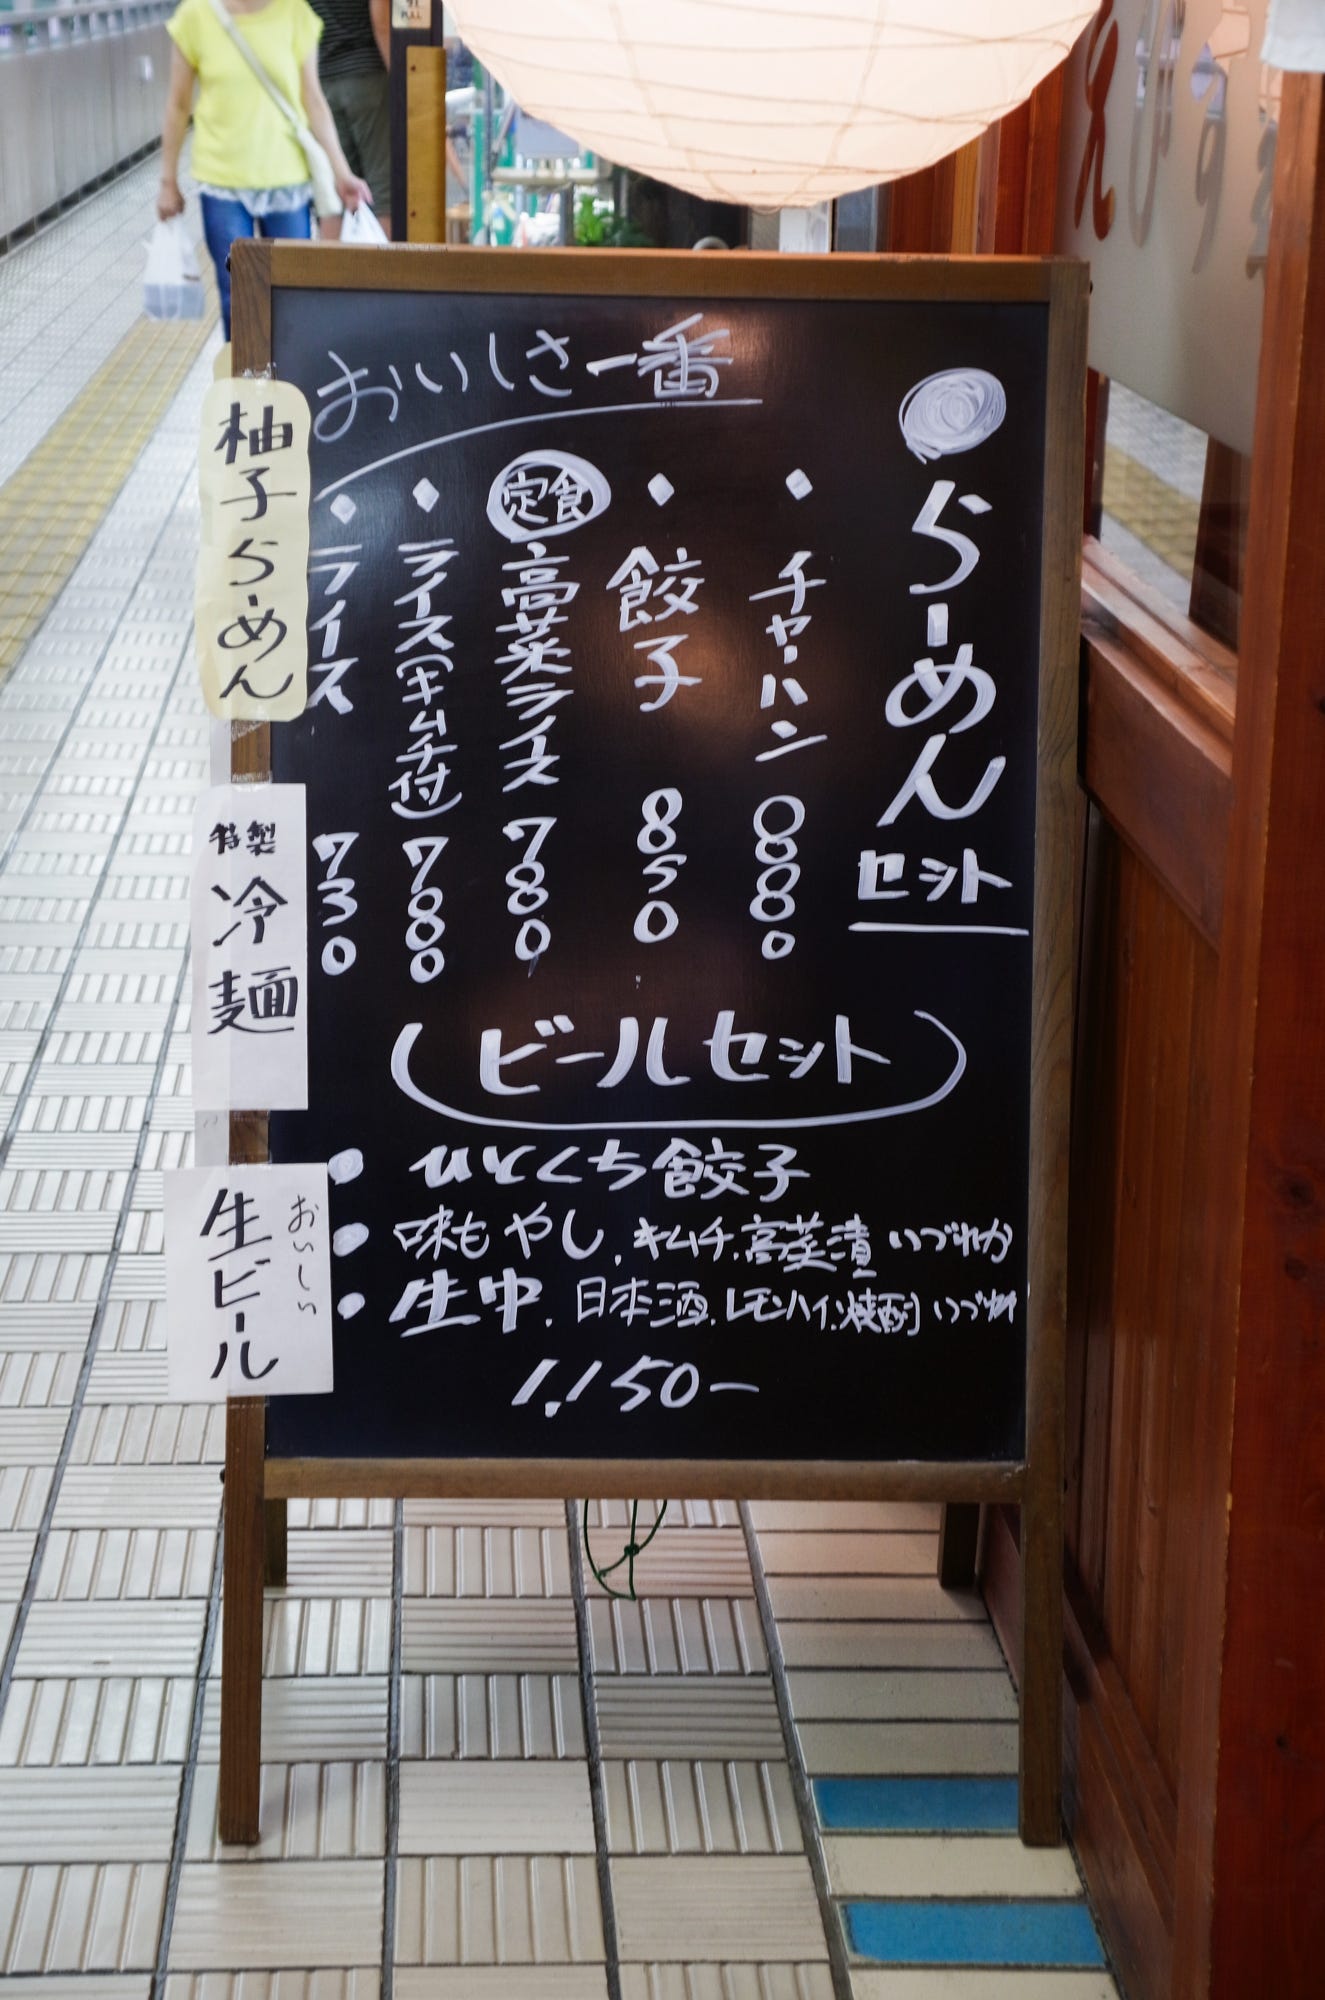 おいしさ一番
らーめん
セット
チャーハン 880
餃子 850
定食
高菜ライス 780
ライス(キムチ付) 780
ライス 730
ビールセット
ひとくち餃子
味もやし、キムチ、高菜漬 いづれか
生中、日本酒、レモンハイ、焼酎 いづれか
1,150ー
柚子らーめん
特製
冷麺
おいしい
生ビール